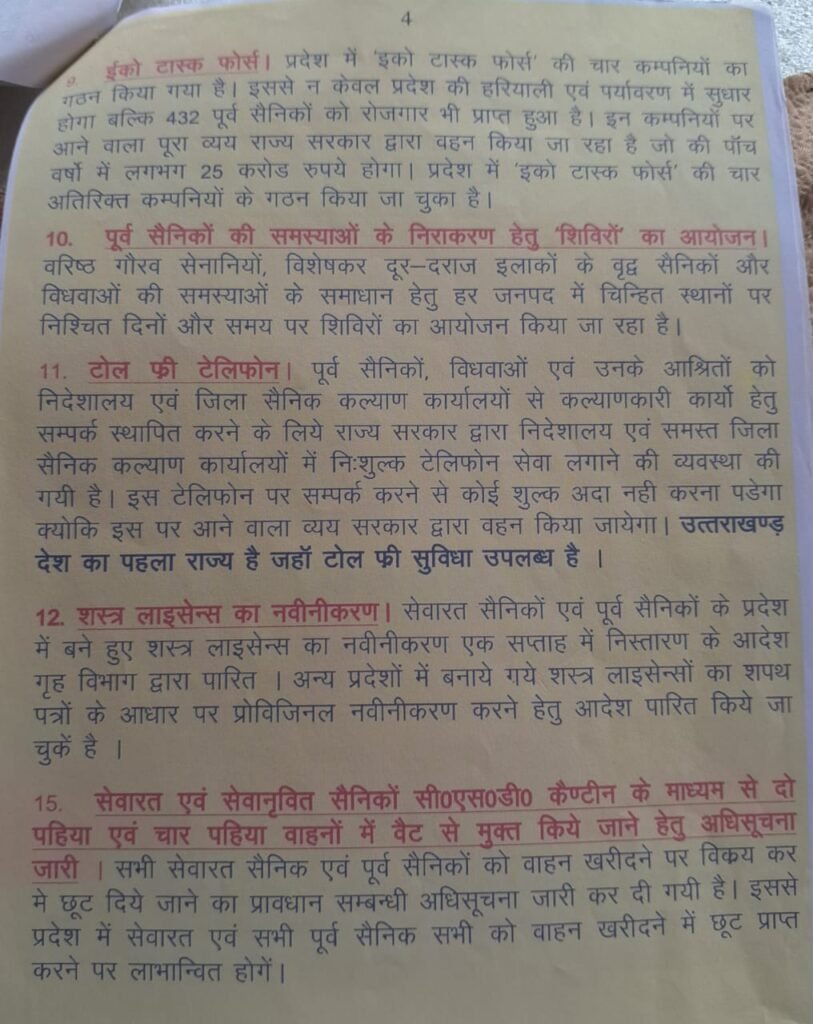 4
9. ईको टास्क फोर्स। प्रदेश में 'इको टास्क फोर्स' की चार कम्पनियों का
गठन किया गया है। इससे न केवल प्रदेश की हरियाली एवं पर्यावरण में सुधार
होगा बल्कि 432 पूर्व सैनिकों को रोजगार भी प्राप्त हुआ है। इन कम्पनियों पर
आने वाला पूरा व्यय राज्य सरकार द्वारा वहन किया जा रहा है जो की पॉच
वर्षो में लगभग 25 करोड रुपये होगा। प्रदेश में 'इको टास्क फोर्स' की चार
अतिरिक्त कम्पनियों के गठन किया जा चुका है।
10. पूर्व सैनिकों की समस्याओं के निराकरण हेतु 'शिविरों' का आयोजन।
वरिष्ठ गौरव सेनानियों, विशेषकर दूर–दराज इलाकों के वृद्व सैनिकों और
विधवाओं की समस्याओं के समाधान हेतु हर जनपद में चिन्हित स्थानों पर
निश्चित दिनों और समय पर शिविरों का आयोजन किया जा रहा है।
11. टोल फ्री टेलिफोन। पूर्व सैनिकों, विधवाओं एवं उनके आश्रितों को
निदेशालय एवं जिला सैनिक कल्याण कार्यालयों से कल्याणकारी कार्यो हेतु
सम्पर्क स्थापित करने के लिये राज्य सरकार द्वारा निदेशालय एवं समस्त जिला
सैनिक कल्याण कार्यालयों में निःशुल्क टेलिफोन सेवा लगाने की व्यवस्था की
गयी है। इस टेलिफोन पर सम्पर्क करने से कोई शुल्क अदा नही करना पडेगा
क्योकि इस पर आने वाला व्यय सरकार द्वारा वहन किया जायेगा। उत्तराखण्ड़
देश का पहला राज्य है जहॉ टोल फ्री सुविधा उपलब्ध है ।
12. शस्त्र लाइसेन्स का नवीनीकरण। सेवारत सैनिकों एवं पूर्व सैनिकों के प्रदेश
में बने हुए शस्त्र लाइसेन्स का नवीनीकरण एक सप्ताह में निस्तारण के आदेश
गृह विभाग द्वारा पारित । अन्य प्रदेशों में बनाये गये शस्त्र लाइसेन्सों का शपथ
पत्रों के आधार पर प्रोविजिनल नवीनीकरण करने हेतु आदेश पारित किये जा
चुकें है ।
15. सेवारत एवं सेवानृवित सैनिकों सी0एस0डी0 कैण्टीन के माध्यम से दो
पहिया एवं चार पहिया वाहनों में वैट से मुक्त किये जाने हेतु अधिसूचना
जारी । सभी सेवारत सैनिक एवं पूर्व सैनिकों को वाहन खरीदने पर विक्रय कर
मे छूट दिये जाने का प्रावधान सम्बन्धी अधिसूचना जारी कर दी गयी है। इससे
प्रदेश में सेवारत एवं सभी पूर्व सैनिक सभी को वाहन खरीदने में छूट प्राप्त
करने पर लाभान्वित होगें।